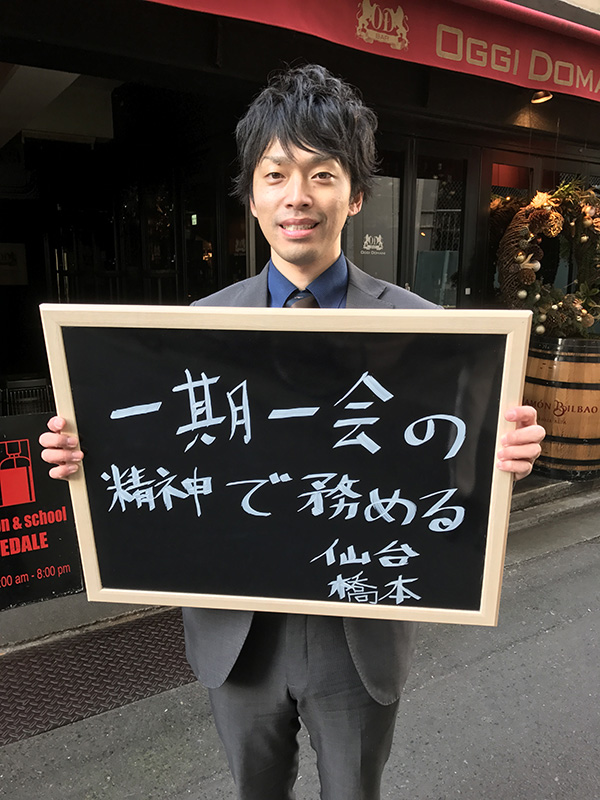 OD
BAR
OGGI DOMA
OD
OGGI DOMANI
一期一会の
精神で務める
仙台
橋本
RAMÓN BILBAO
n & school
EDALE
:00 am - 8:00 pm